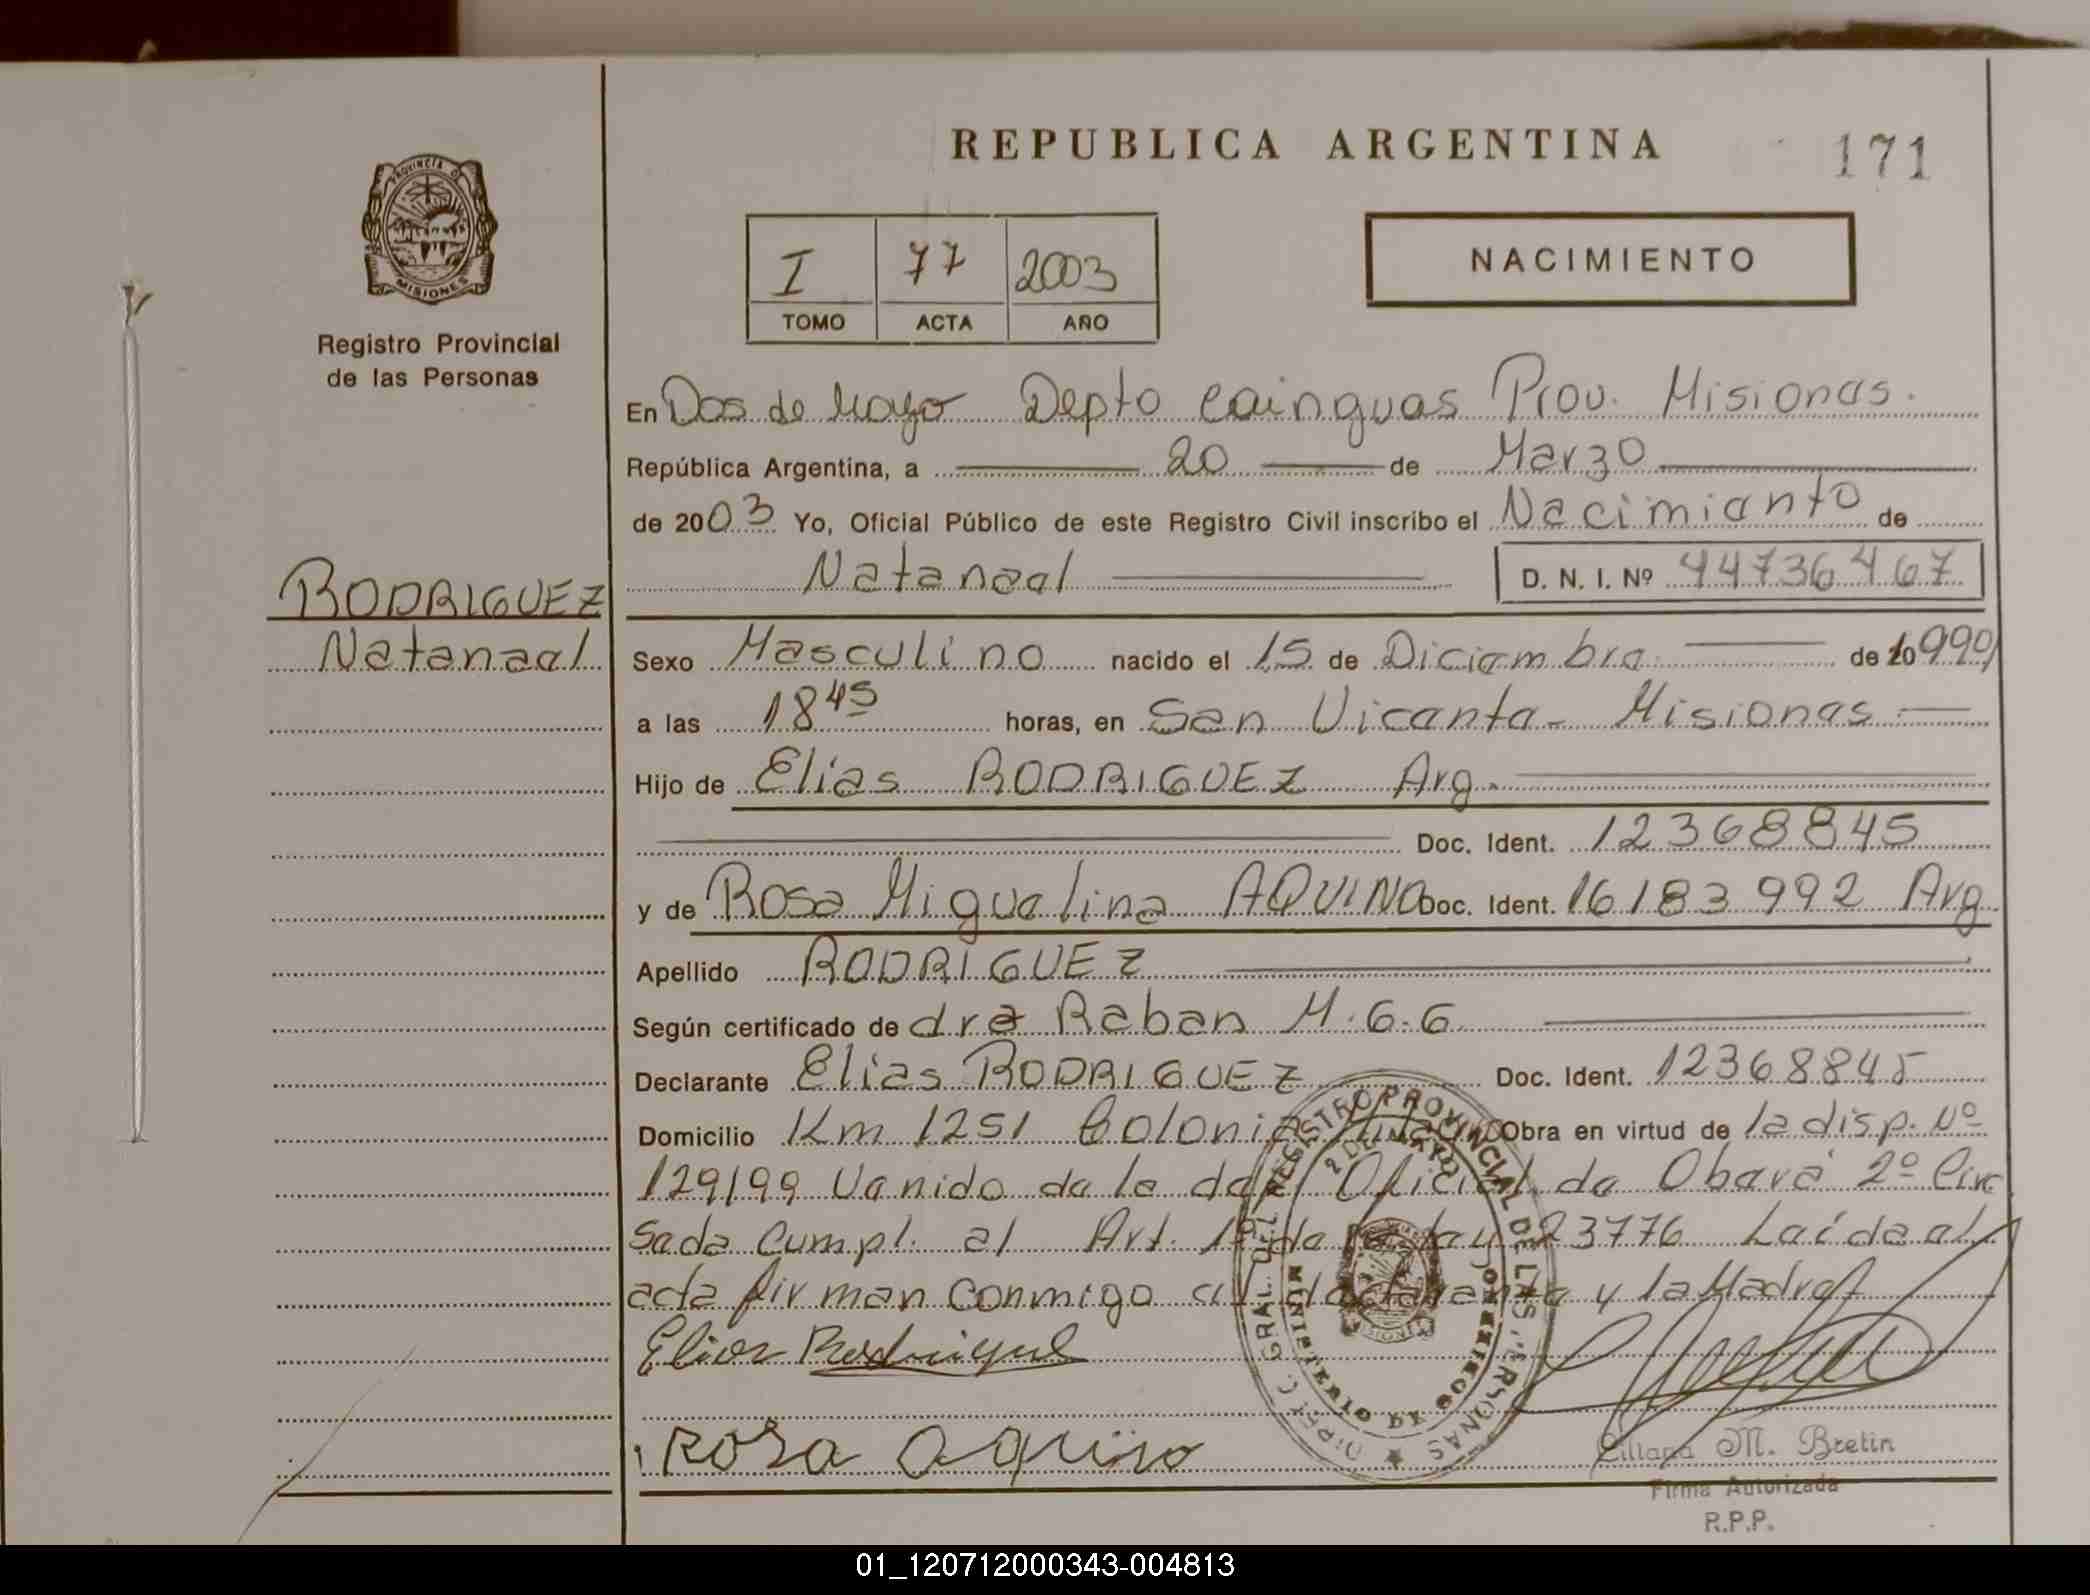 REPUBLICA ARGENTINA
171
PROVINCIA D
MISIONES
Registro Provincial
de las Personas
I 77 2003
TOMO ACTA AÑO
NACIMIENTO
En Dos de Mayo Depto Cainguas Prov. Misiones.
República Argentina, a 20 de Marzo
de 2003 Yo, Oficial Público de este Registro Civil inscribo el Nacimiento de
Natanael
D. N. I. Nº 44736467
RODRIGUEZ
Natanael
Sexo Masculino nacido el 15 de Diciembre de 1990
a las 18 45 horas, en San Vicente - Misiones
Hijo de Elias RODRIGUEZ Arg.
Doc. Ident. 12368845
y de Rosa Miguelina AQUINO Doc. Ident. 16183992 Arg
Apellido RODRIGUEZ
Según certificado de dra Raban M.G.G
Declarante Elias RODRIGUEZ Doc. Ident. 12368845
Domicilio Km 1251 Colonia Obra en virtud de la disp. Nº
129/99 Venido de la Oficial de Obera 2º Circ
Sede Cumpl. al Art. 1º de la Ley 23776 Leída el
acta firman conmigo el declarante y la Madre
Elias Rodriguez
Rosa Aquino
DIREC. GRAL. DEL REGISTRO PROVINCIAL DE LAS PERSONAS
2 DE MAYO
MINISTERIO DE GOBIERNO
MISIONES
Liliana M. Bretin
Firma Autorizada
R.P.P.
01_120712000343-004813